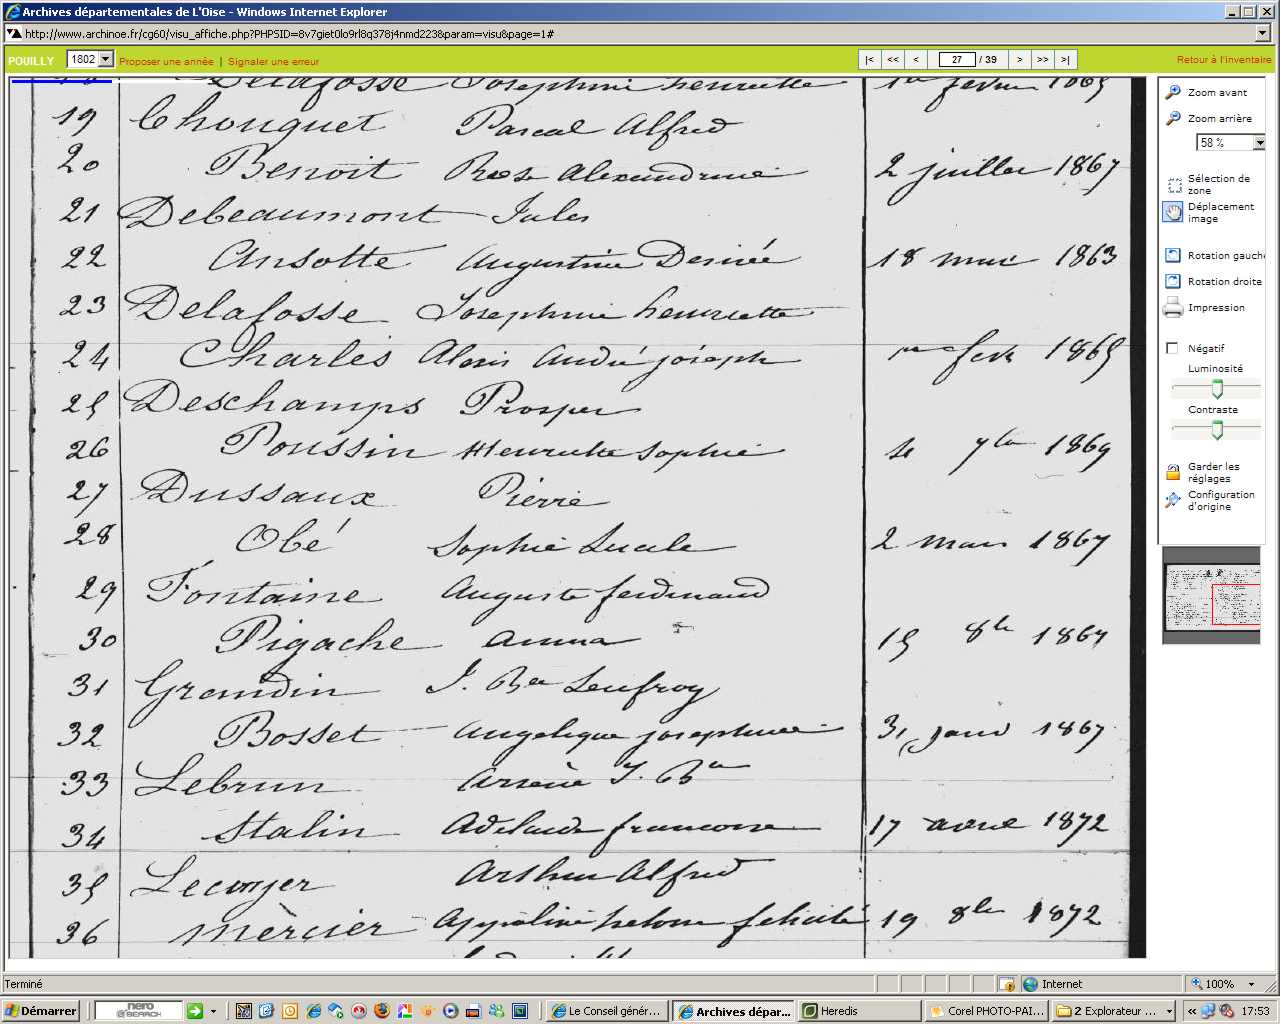 Archives départementales de L'Oise - Windows Internet Explorer
http://www.archinoe.fr/cg60/visu_affiche.php?PHPSID=8v7giet0lo9rl8q378j4nmd223&param=visu&page=1#
POUILLY 1802 Proposer une année | Signaler une erreur |< << < 27 / 39 > >> >| Retour à l'inventaire
Delafosse Josephine henriette 1er fevrier 1865
19 Chouquet Pascal Alfred
20 Benoit Rose Alexandrine 2 juillet 1867
21 Debeaumont Jules
22 Ansotte Augustine Desirée 18 mai 1863
23 Delafosse Josephine henriette
24 Charles Alexis André joseph 1er fevr 1865
25 Deschamps Prosper
26 Poussin Henriette Sophie 4 7bre 1869
27 Dussaux Pierre
28 Obé Sophie Lucile 2 mars 1867
29 Fontaine Auguste ferdinand
30 Pigache anna 15 8bre 1867
31 Grandin J. Bte Leufroy
32 Bosset Angelique josephine 31 janv 1867
33 Lebrun Arsène J. Bte
34 Stalin Adelaide francoise 17 1872
35 Arthur Alfred
36 mercier felicité 19 8bre 1872
Zoom avant
Zoom arrière
58 %
Sélection de zone
Déplacement image
Rotation gauche
Rotation droite
Impression
Négatif
Luminosité
Contraste
Garder les réglages
Configuration d'origine
Terminé Internet 100%
Démarrer nero SEARCH Le Conseil génér... Archives dépar... Heredis Corel PHOTO-PAI... 2 Explorateur ... 17:53